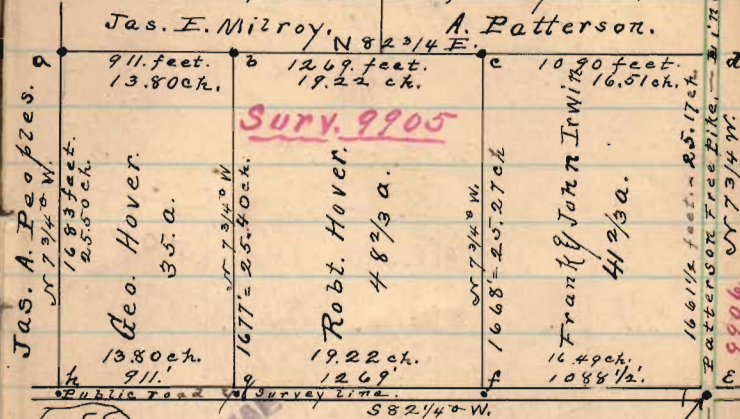 Jas. E. Milroy. A. Patterson.
N 82 3/4 E.
a b c d
911. feet. 1269. feet. 1090 feet.
13.80ch. 19.22 ch. 16.51ch.
Surv. 9905
Jas. A. Peoples.
N 7 3/4° W.
1683 feet.
25.50ch.
Geo. Hover.
35.a.
N 7 3/4° W.
1677' = 25.40ch.
Robt. Hover.
48 2/3 a.
N 7 3/4° W.
1668' = 25.27ch
Frank & John Irwin
41 2/3 a.
1661 1/2 feet. - 25.17ch
Patterson Free Pike.
N 7 3/4 W.
9906
13.80ch. 19.22 ch. 16.49ch.
911.' 1269' 1088 1/2.'
h g f E
Public road & Survey line.
S 82 1/4° W.